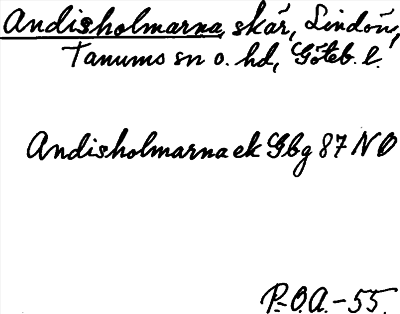 Andisholmarna, skär, Lindön,
Tanums sn o. hd, Göteb. l.
Andisholmarna ek Gbg 87 NO
P.O.A. - 55.